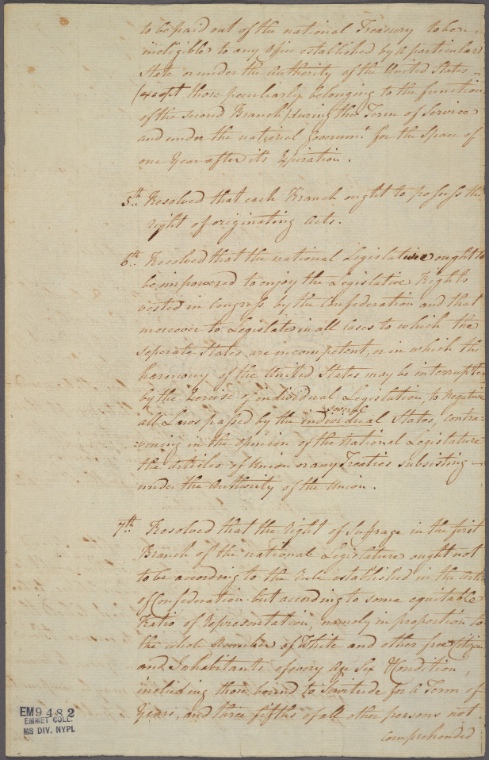 to be paid out of the national Treasury to be
ineligible to any office established by a particular
State or under the authority of the United States
(except those peculiarly belonging to the function
of the second Branch) during the Term of Service
and under the national Governmt. for the Space of
one Year after its expiration.
5th. Resolved that each Branch ought to possess the
right of originating Acts.
6th. Resolved that the national Legislature ought to
be impowered to enjoy the Legislative Rights
vested in Congress by the Confederation and that
moreover to Legislate in all cases to which the
Seperate States are incompetent, or in which the
harmony of the United States may be interrupted
by the exercise of individual Legislation, to negative
several
all Laws passed by the individual States, contra-
vening in the opinion of the National Legislature
the articles of Union or any Treaties subsisting
under the authority of the Union.
7th. Resolved that the right of Suffrage in the first
Branch of the national Legislature ought not
to be according to the rule established in the
of Confederation but according to some equitable
Ratio of Representation, namely in proportion to
the whole Number of White and other free Citizens
and Inhabitants of every Age Sex & Condition
including those bound to Servitude for a Term of
Years, and three fifths of all other persons not
comprehended
EM9482
EMMET COLL.
MS DIV. NYPL